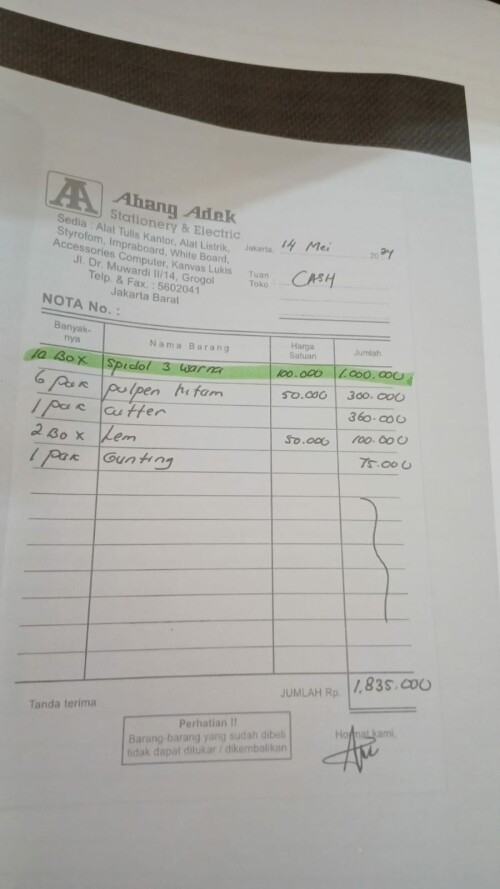 AA Abang Adek
Stationery & Electric
Sedia : Alat Tulis Kantor, Alat Listrik,
Styrofom, Impraboard, White Board,
Accessories Computer, Kanvas Lukis
Jl. Dr. Muwardi II/14, Grogol
Telp. & Fax. : 5602041
Jakarta Barat
Jakarta, 14 Mei 2021
Tuan
Toko CASH
NOTA No. :
Banyak-nya Nama Barang Harga Satuan Jumlah
10 Box Spidol 3 warna 100.000 1.000.000
6 pak pulpen hitam 50.000 300.000
1 pak cutter 360.000
2 Box Lem 50.000 100.000
1 pak Gunting 75.000
JUMLAH Rp. 1,835.000
Tanda terima
Perhatian !!
Barang-barang yang sudah dibeli
tidak dapat ditukar / dikembalikan
Hormat kami,